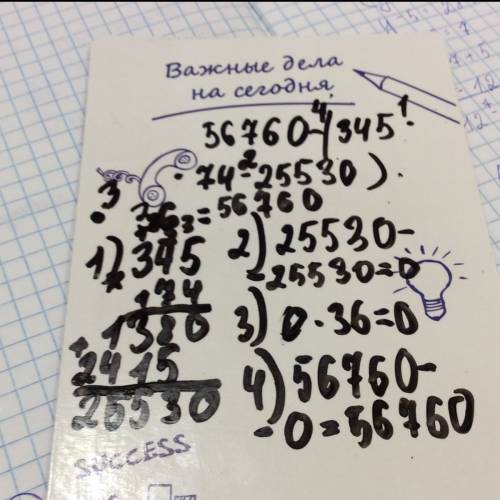 Важные дела
на сегодня
56760-(345
· 74-25530)·
· 36=56760
1) 345
74
1380
2415
25530
2) 25530-
-25530=0
3) 0·36=0
4) 56760-
-0=56760
SUCCESS